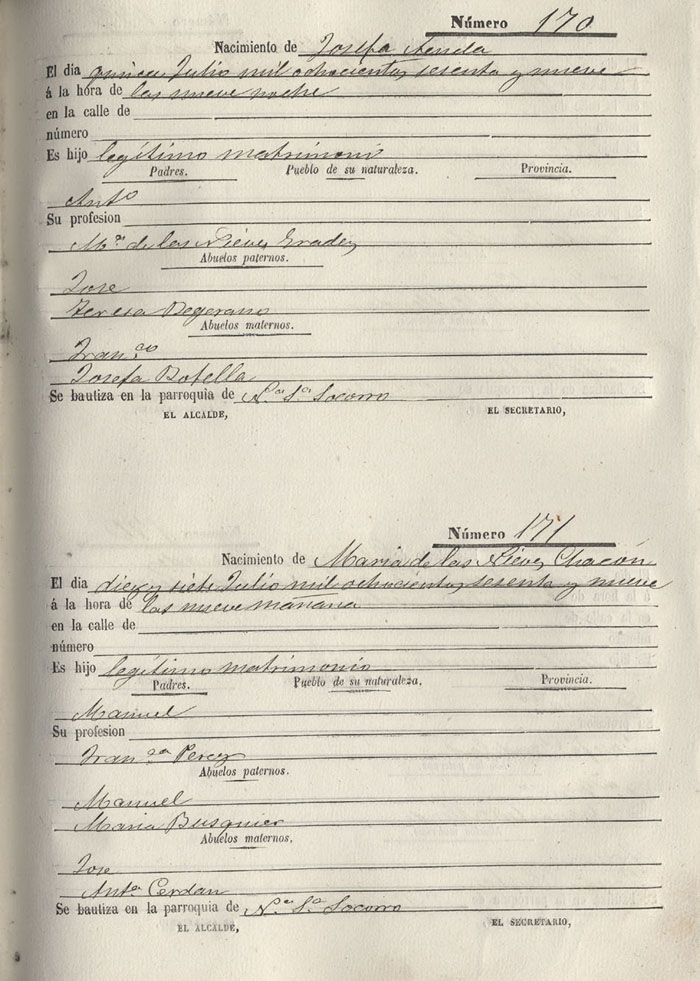 Número 170
Nacimiento de Josefa
El dia quince Julio mil ochocientos sesenta y nueve
á la hora de las nueve noche
en la calle de
número
Es hijo legítimo matrimoni
Padres. Pueblo de su naturaleza. Provincia.
Anto
Su profesion
Mª de las Nieves
Abuelos paternos.
Jose
Teresa Degerano
Abuelos maternos.
Franco
Josefa Botella
Se bautiza en la parroquia de Nª Sª Socorro
EL ALCALDE, EL SECRETARIO,
Número 171
Nacimiento de Maria de las Nieves Chacón
El dia diez y siete Julio mil ochocientos sesenta y nueve
á la hora de las nueve mañana
en la calle de
número
Es hijo legítimo matrimonio
Padres. Pueblo de su naturaleza, Provincia.
Manuel
Su profesion
Franca Perez
Abuelos paternos.
Manuel
Maria Busquier
Abuelos maternos,
Jose
Anta Cerdan
Se bautiza en la parroquia de Nª Sª Socorro
EL ALCALDE, EL SECRETARIO,